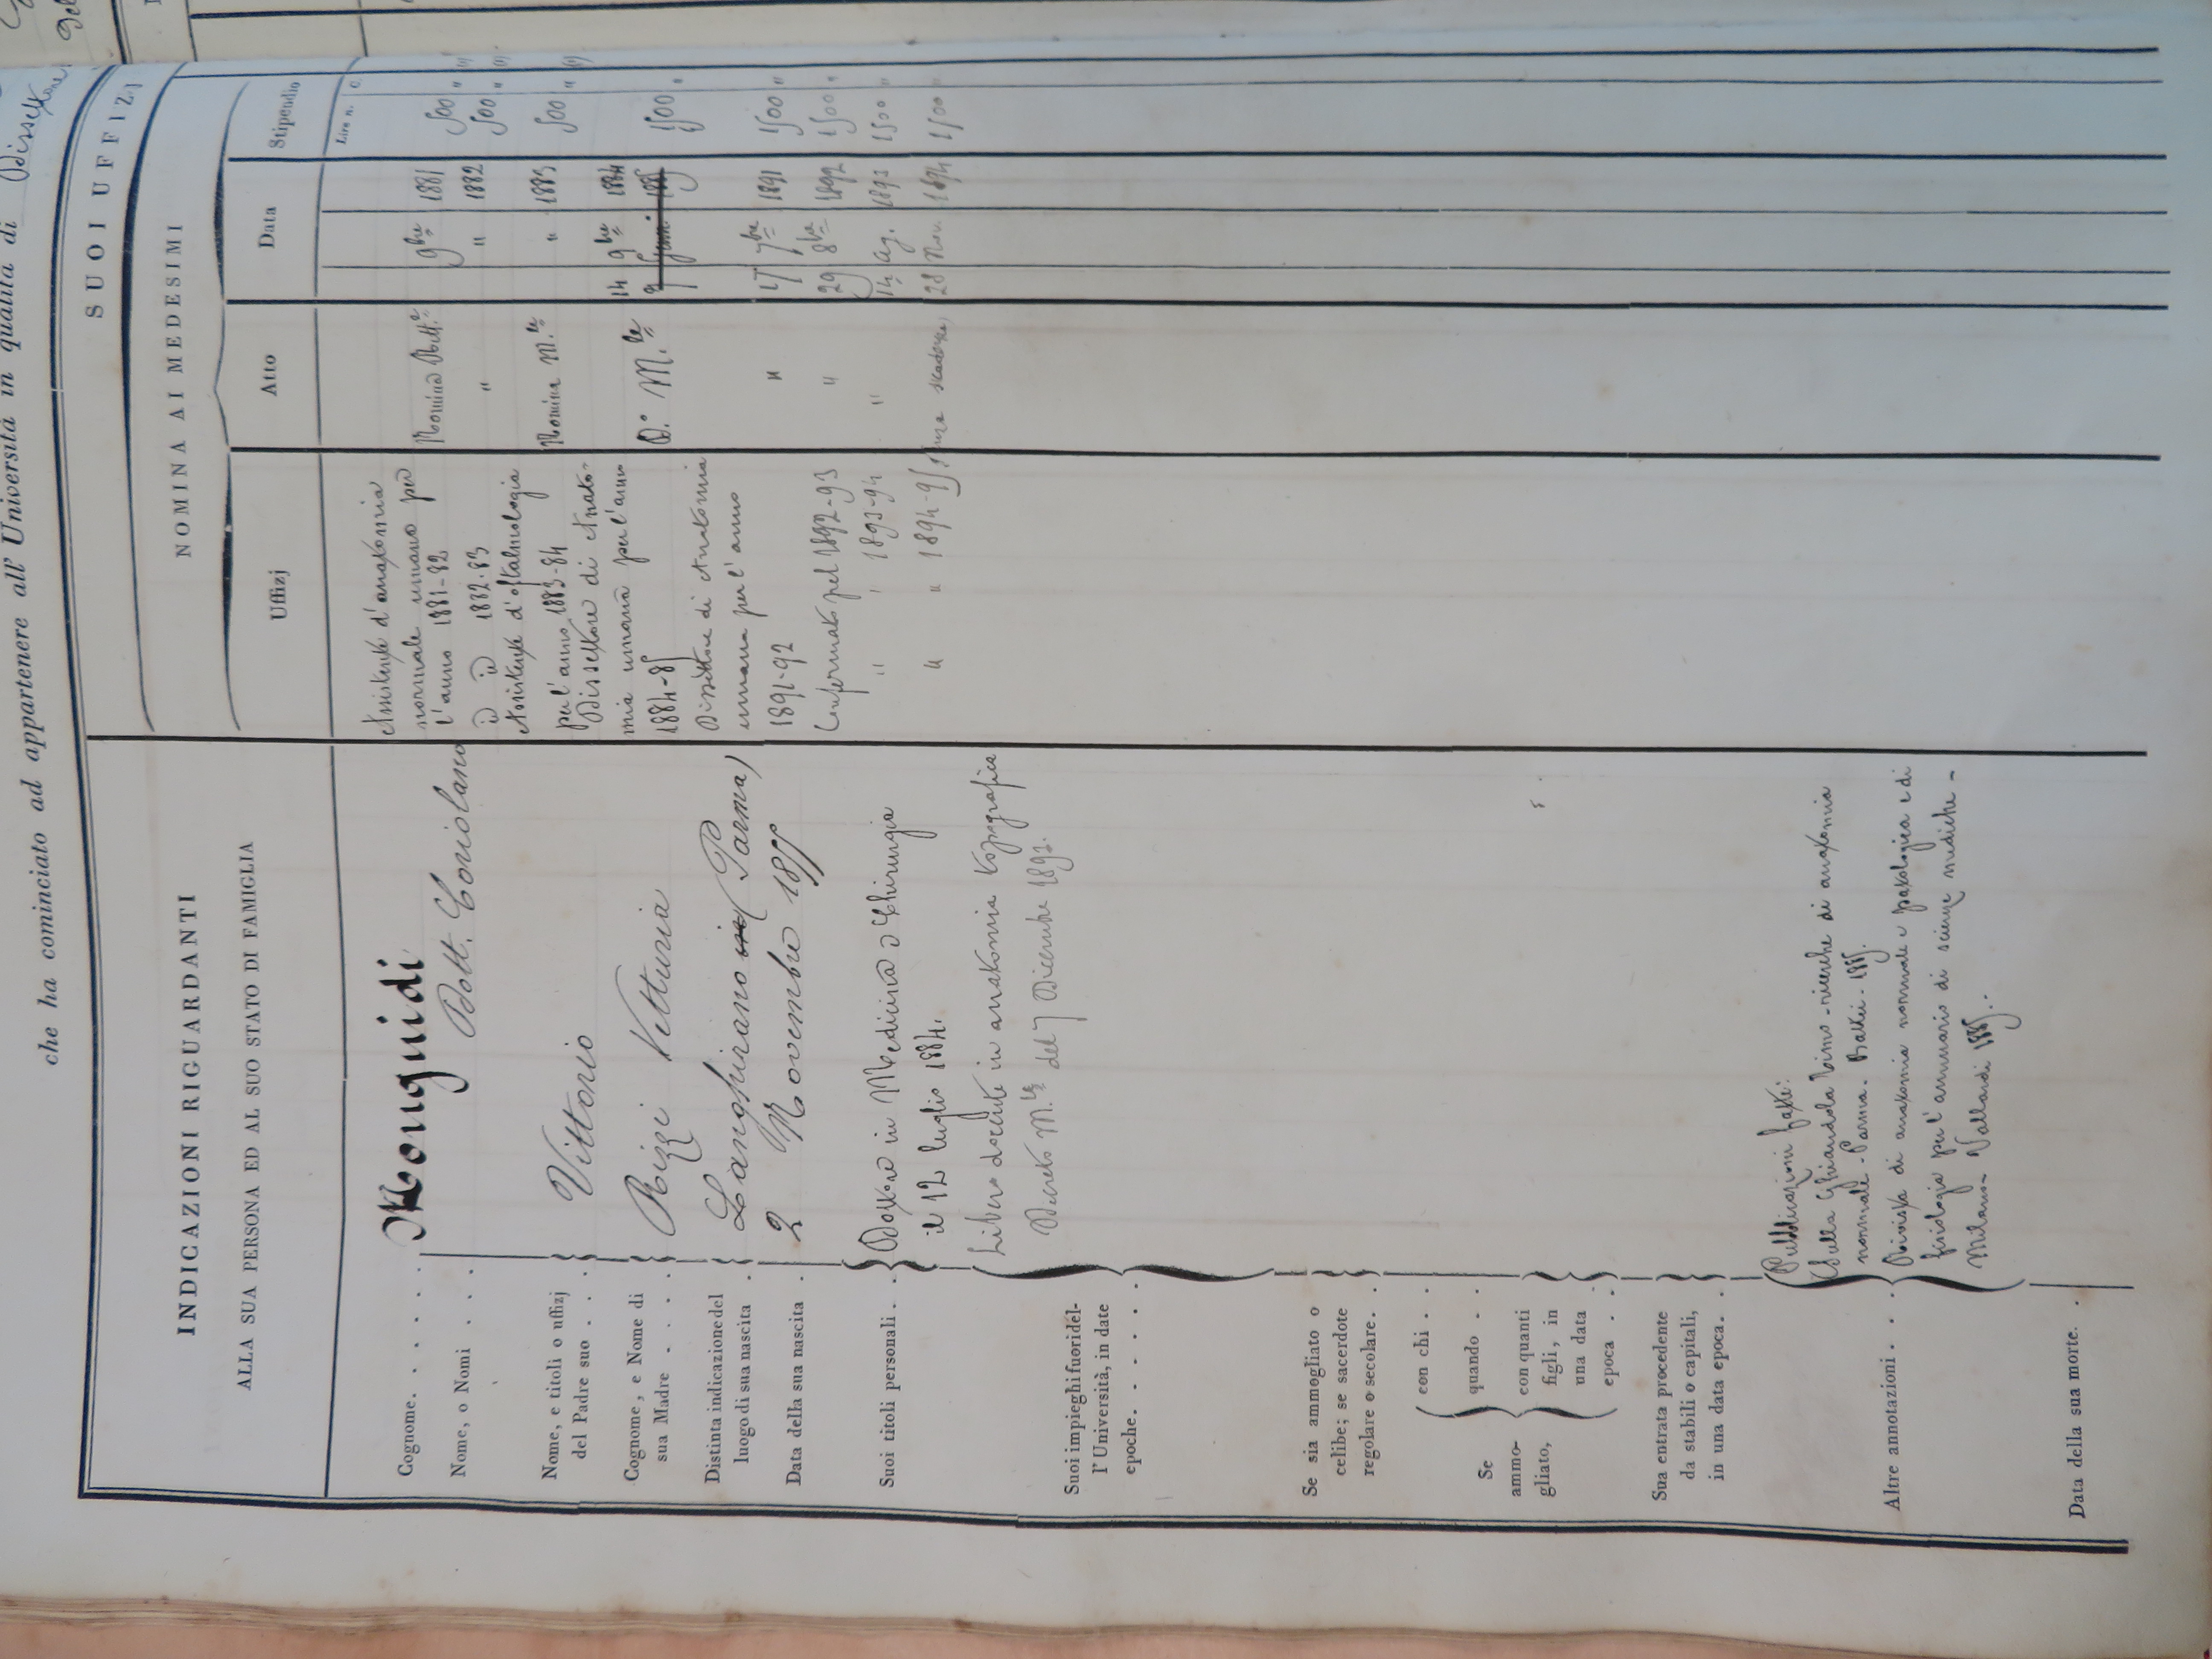 Dissettore
che ha cominciato ad appartenere all' Università in qualità di
INDICAZIONI RIGUARDANTI
ALLA SUA PERSONA ED AL SUO STATO DI FAMIGLIA
Cognome. . . . . Monguidi
Nome, o Nomi . . Dott. Coriolano
Nome, e titoli o uffizj
del Padre suo . . . Vittorio
Cognome, e Nome di
sua Madre . . . . Rizzi Vetturia
Distinta indicazione del
luogo di sua nascita . Langhirano (Parma)
Data della sua nascita . 2 Novembre 1855
Suoi titoli personali. . Dottore in Medicina e Chirurgia
il 12 luglio 1884.
Libero docente in anatomia topografica
Decreto M.le del 7 Dicembre 1892.
Suoi impieghi fuori del-
l' Università, in date
epoche. . . . . . .
Se sia ammogliato o
celibe; se sacerdote
regolare o secolare. .
Se
ammo-
gliato,
con chi . .
quando . .
con quanti
figli, in
una data
epoca . .
Sua entrata procedente
da stabili o capitali,
in una data epoca. .
Altre annotazioni . . .
Pubblicazioni fatte:
Sulla Ghiandola Timo - ricerche di anatomia
normale - Parma. Battei - 1885.
Rivista di anatomia normale e patologica e di
fisiologia per l' annuario di scienze mediche -
Milano - Vallardi 1885.
Data della sua morte. .
SUOI UFFIZJ
NOMINA AI MEDESIMI
Uffizj
Atto
Data
Stipendio
Lire n. c.
Assistente d' anatomia
normale umana per
l' anno 1881-82 Nomina Rett.e 9bre 1881 500 "
id id 1882-83 " " 1882 500 "
Assistente d' oftalmologia
per l' anno 1883-84 Nomina M.le " 1883 500 "
Dissettore di Anato-
mia umana per l' anno 14 9bre 1884
1884-85 D.o M.le 9 Genn. 1885 1500 "
Dissettore di Anatomia
umana per l' anno
1891-92 " 17 7bre 1891 1500 "
Confermato pel 1892-93 " 29 8bre 1892 1500 "
" " 1893-94 " 14 Ag. 1893 1500 "
" " 1894-95 senza scadenza 28 Nov. 1894 1500 "